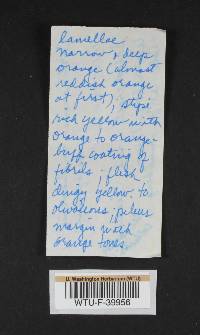 lamellae
narrow, deep
orange (almost
reddish orange
at first); stipe
rich yellow with
orange to orange-
buff coating of
fibrils; flesh
dingy yellow to
olivaceous; pileus
margin with
orange tones.
U. Washington Herbarium (WTU)
WTU-F-39956